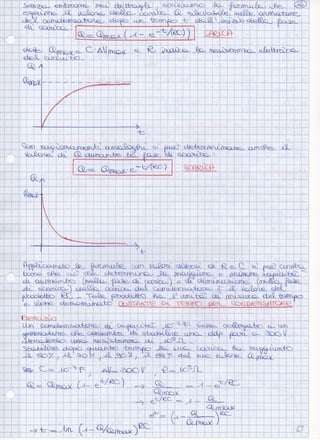 Senza entrare nei dettagli, scriviamo la formula che
esprime il valore della carica Q rilevabile sulle armature
del condensatore dopo un tempo t dall'inizio della fase
di carica:
Q = Qmax (1 - e^-t/(RC)) CARICA
dove Qmax = C·ΔVmax e R indica la resistenza elettrica
del circuito.
Q
Qmax
t
Con ragionamenti analoghi si può determinare anche il
valore di Q durante la fase di scarica:
Q = Qmax e^-t/(RC) SCARICA
Q
Qmax
t
Applicando le formule con valori diversi di R e C si può
che ciò che determina la maggiore o minore rapidità
di aumento (nella fase di carica) o di diminuzione (nella fase
di scarica) della carica del condensatore è il valore del
prodotto RC. Tale prodotto ha l'unità di misura del tempo
e viene denominato COSTANTE DI TEMPO DEL CONDENSATORE
Esercizio
Un condensatore di capacità 10^-7 F viene collegato a un
generatore che consente di stabilire una ddp pari a 300 V
una resistenza di 10^5 Ω.
Stabilire dopo quanto tempo la sua carica ha raggiunto
il 50%, il 70%, il 90%, il 99% del suo valore Qmax
C = 10^-7 F ΔV = 300 V R = 10^5 Ω
Q = Qmax (1 - e^-t/RC) → Q/Qmax = 1 - e^-t/RC
→ e^-t/RC = 1 - Q/Qmax
(1 - Q/Qmax)^RC
→ t = -ln (1 - Q/Qmax)^RC